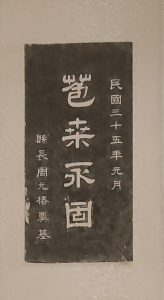 民國三十五年元月
苞桑永固
縣長周元椿奠基